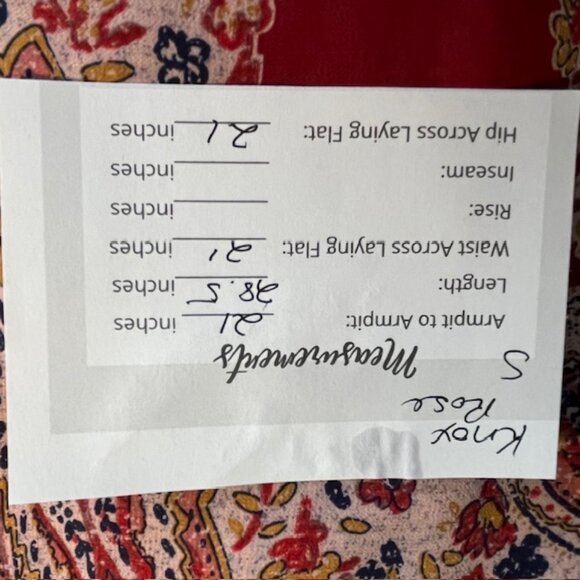 Knox
Rose
S
Measurements
Armpit to Armpit: 21 inches
Length: 28.5 inches
Waist Across Laying Flat: 21 inches
Rise: inches
Inseam: inches
Hip Across Laying Flat: 21 inches